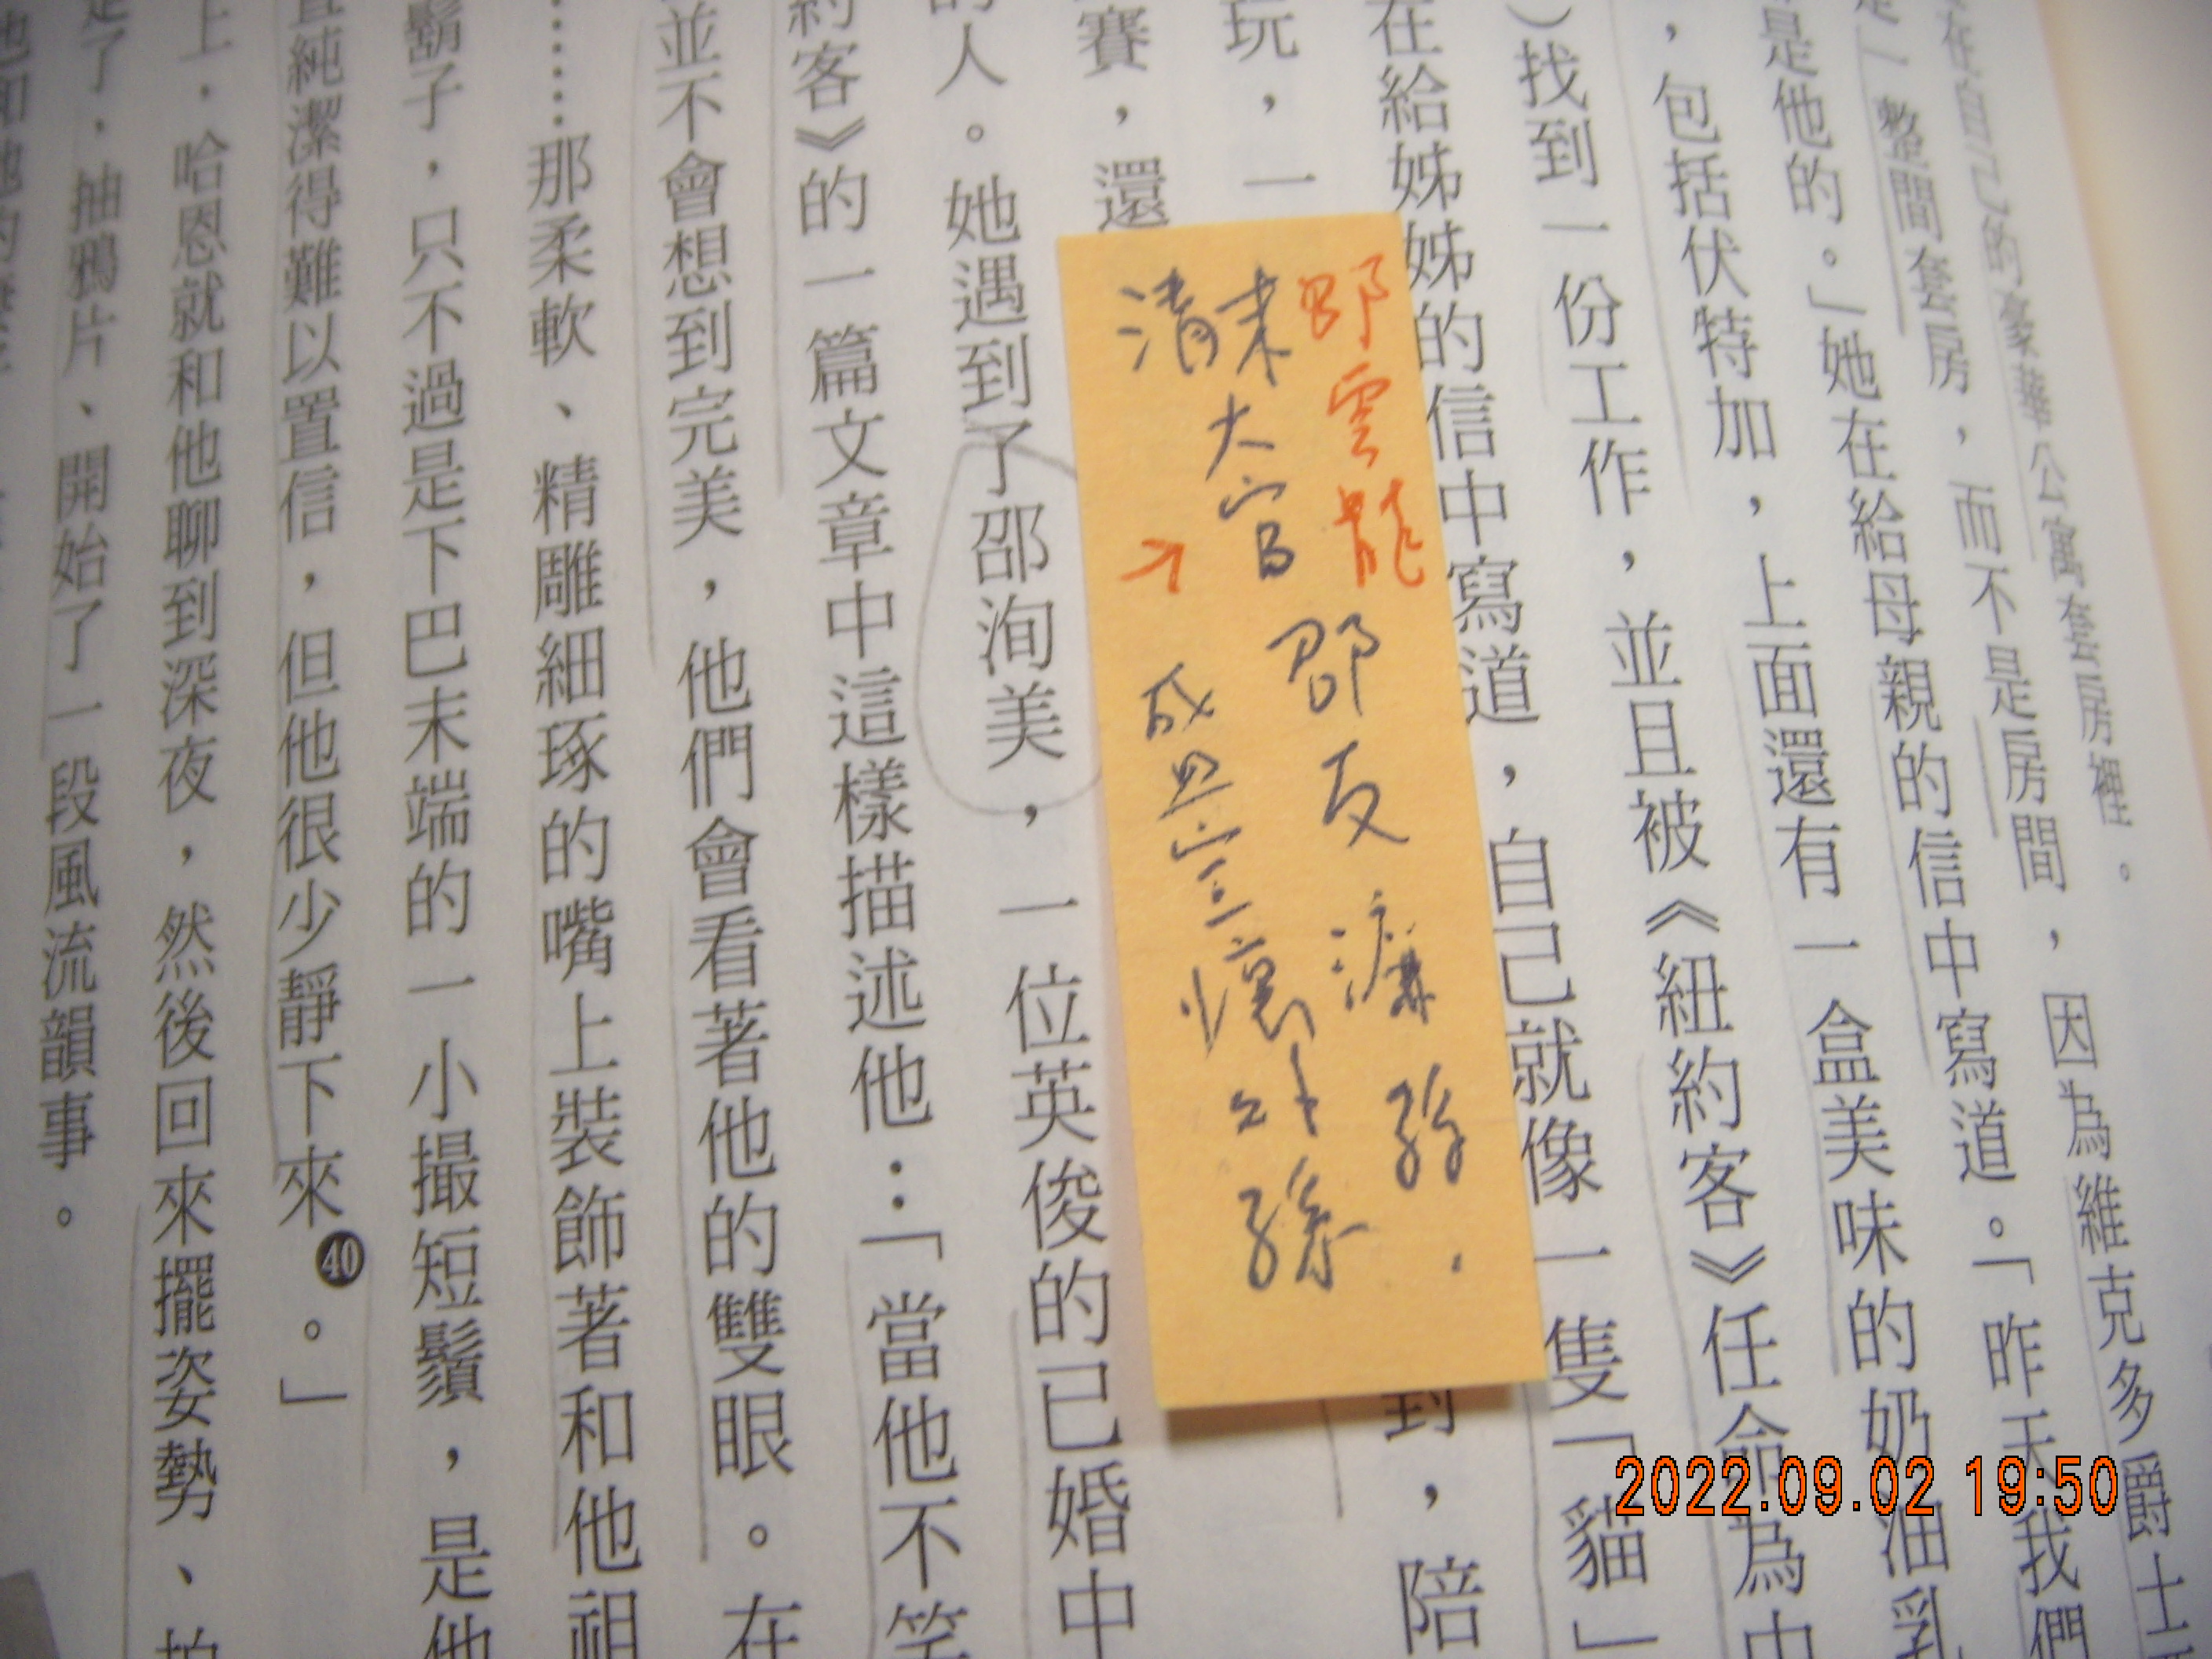 在自己的豪華公寓套房裡。
是一整間套房，而不是房間，因為維克多爵士
是他的。」她在給母親的信中寫道。「昨天我們
，包括伏特加，上面還有一盒美味的奶油乳
）找到一份工作，並且被《紐約客》任命為中
在給姊姊的信中寫道，自己就像一隻「貓」
玩，一
到，陪
賽，還
的人。她遇到了邵洵美，一位英俊的已婚中
約客》的一篇文章中這樣描述他：「當他不笑
並不會想到完美，他們會看著他的雙眼。在
……那柔軟、精雕細琢的嘴上裝飾著和他祖
鬍子，只不過是下巴末端的一小撮短鬚，是他
純潔得難以置信，但他很少靜下來40。」
上，哈恩就和他聊到深夜，然後回來擺姿勢、拍
了，抽鴉片、開始了一段風流韻事。
邵雲龍
清末大官邵友濂孫.
盛宣懷外孫
2022.09.02 19:50